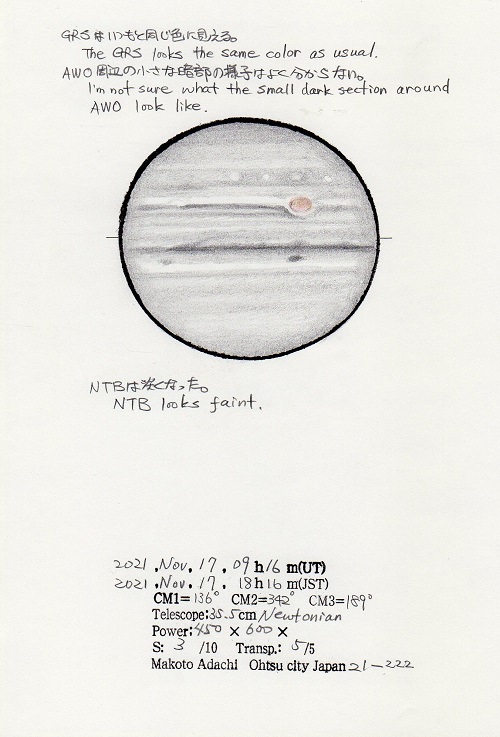 GRSはいつもと同じ色に見える。
The GRS looks the same color as usual.
AWO周辺の小さな暗部の様子はよく分からない。
I'm not sure what the small dark section around
AWO look like.
NTBは淡くなった。
NTB looks faint.
2021, Nov. 17, 09 h 16 m(UT)
2021, Nov. 17, 18 h 16 m(JST)
CM1= 136° CM2= 342° CM3= 189°
Telescope: 35.5cm Newtonian
Power: 450 × 600 ×
S: 3 /10 Transp.: 5/5
Makoto Adachi Ohtsu city Japan 21-222